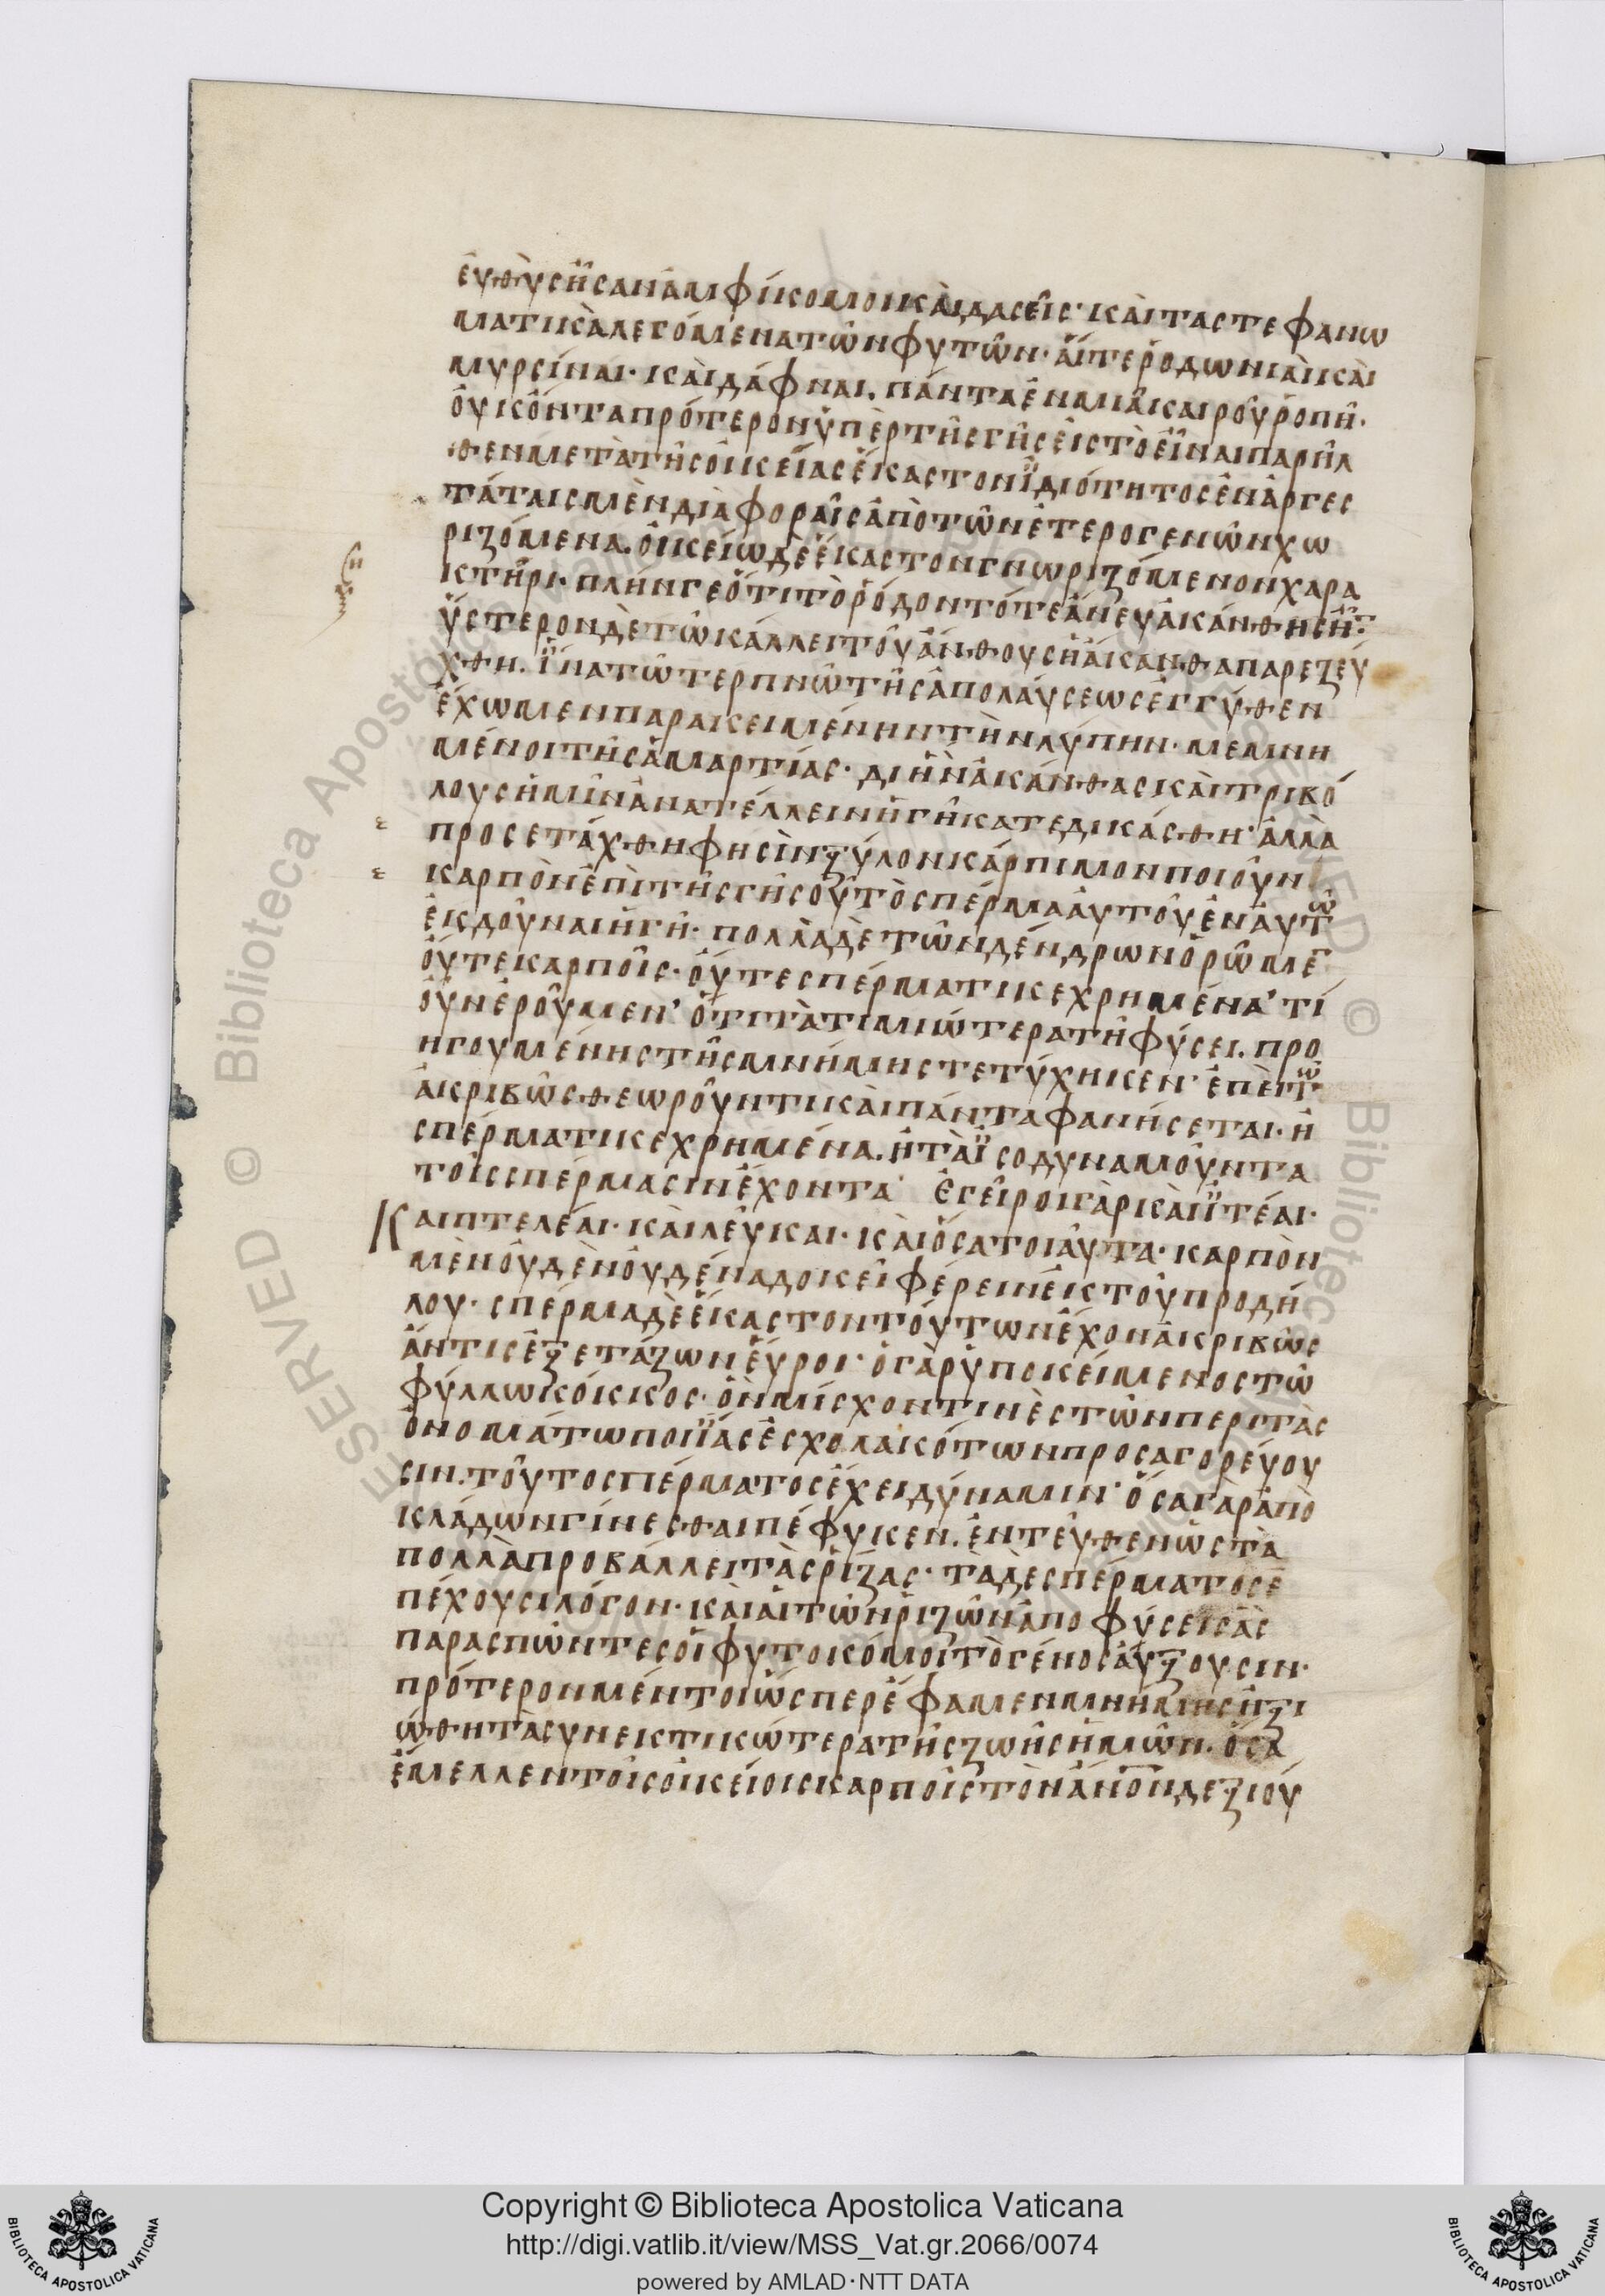 εὐθὺς ἦσαν ἀμφίκομοι καὶ δασεῖς· καὶ τα στεφανω
ματικὰ λεγόμενα τῶν φυτῶν· αἵ τε ῥοδωνιαὶ καὶ
μυρσίναι· καὶ δάφναι. πάντα ἐν μιᾶ καιροῦ ῥοπῆ·
οὐκ ὄντα πρότερον ὑπὲρ τῆς γῆς εἰς τὸ εἶναι παρῆλ
θεν μετὰ τῆς οἰκείας ἕκαστον ἰδιότητος ἐναργεσ
τάταις μὲν διὰ φοραῖς ἀπὸ τῶν ἑτερογενῶν χω
ριζόμενα. οἰκείω δὲ ἕκαστον γνωριζόμενον χαρα
κτῆρι· πλήν γε ὅτι τὸ ῥόδον τότε ἄνευ ἀκάνθης ἦν·
ὕστερον δὲ τῶ κάλλει τοῦ ἄνθους ἡ ἄκανθα παρεζεύ
χθη. ἵνα τῶ τερπνῶ τῆς ἀπολαύσεως ἐγγύθεν
ἔχωμεν παρακειμένην τὴν λύπην· μεμνη
μένοι τῆς ἁμαρτίας· δι ἣν ἀκάνθας καὶ τριβό
λους ἡμῖν ἀνατέλλειν ἡ γῆ κατεδικάσθη· ἀλλὰ
προσετάχθη φησὶν ξύλον κάρπιμον ποιοῦν
καρπὸν ἐπὶ τῆς γῆς οὗ τὸ σπέρμα αὐτοῦ ἐν αὐτῶ
ἐκδοῦναι ἡ γῆ· πολλὰ δὲ τῶν δένδρων ὁρῶμε̄
οὔτε καρποῖς· οὔτε σπέρματι κεχρημένα· τί
οὖν ἐροῦμεν· ὅτι τὰ τιμιώτερα τῆ φύσει. προ
ηγουμένης τῆς μνήμης τετύχηκεν· ἐπεὶ τῶ
ἀκριβῶς θεωροῦντι καὶ πάντα φανήσεται· ἢ
σπέρματι κεχρημένα. ἢ τὰ ἰσοδυναμοῦντα
τοῖς σπέρμασιν ἔχοντα· ἔγειροι γὰρ καὶ ἰτέαι·
Και πτελέαι· καὶ λεῦκαι· καὶ ὅσα τοιαῦτα· καρπὸν
μὲν οὐδὲν οὐδένα δοκεῖ φέρειν ἐκ τοῦ προδή
λου· σπέρμα δὲ ἕκαστον τούτων ἔχον ἀκριβῶς
ἄν τις ἐξετάζων εὕροι· ὁ γὰρ ὑποκείμενος τῶ
φύλλω κόκκος· ὃν μίσχον τινὲς τῶν περὶ τὰς
ὀνοματωποιίας ἐσχολακότων προσαγορεύου
σιν. τοῦτο σπέρματος ἔχει δύναμιν· ὅσα γὰρ ἀπὸ
κλάδων γίνεσθαι πέφυκεν. ἐντεῦθεν ὡς τὰ
πολλὰ προβάλλει τὰς ῥίζας· τὰ δὲ σπέρματος ἐ
πέχουσι λόγον· καὶ αἱ τῶν ῥιζῶν ἀποφύσεις ἃς
παρασπῶντες οἱ φυτοκόμοι τὸ γένος αὔξουσιν·
πρότερον μέντοι ὥσπερ ἔφαμεν μνήμης ἠξι
ώθη τὰ συνεκτικώτερα τῆς ζωῆς ἡμῶν. ὅσα
ἔμελλεν τοῖς οἰκείοις καρποῖς τὸν ἄν̅ο̅ν δεξιού
Copyright © Biblioteca Apostolica Vaticana
http://digi.vatlib.it/view/MSS_Vat.gr.2066/0074
powered by AMLAD·NTT DATA